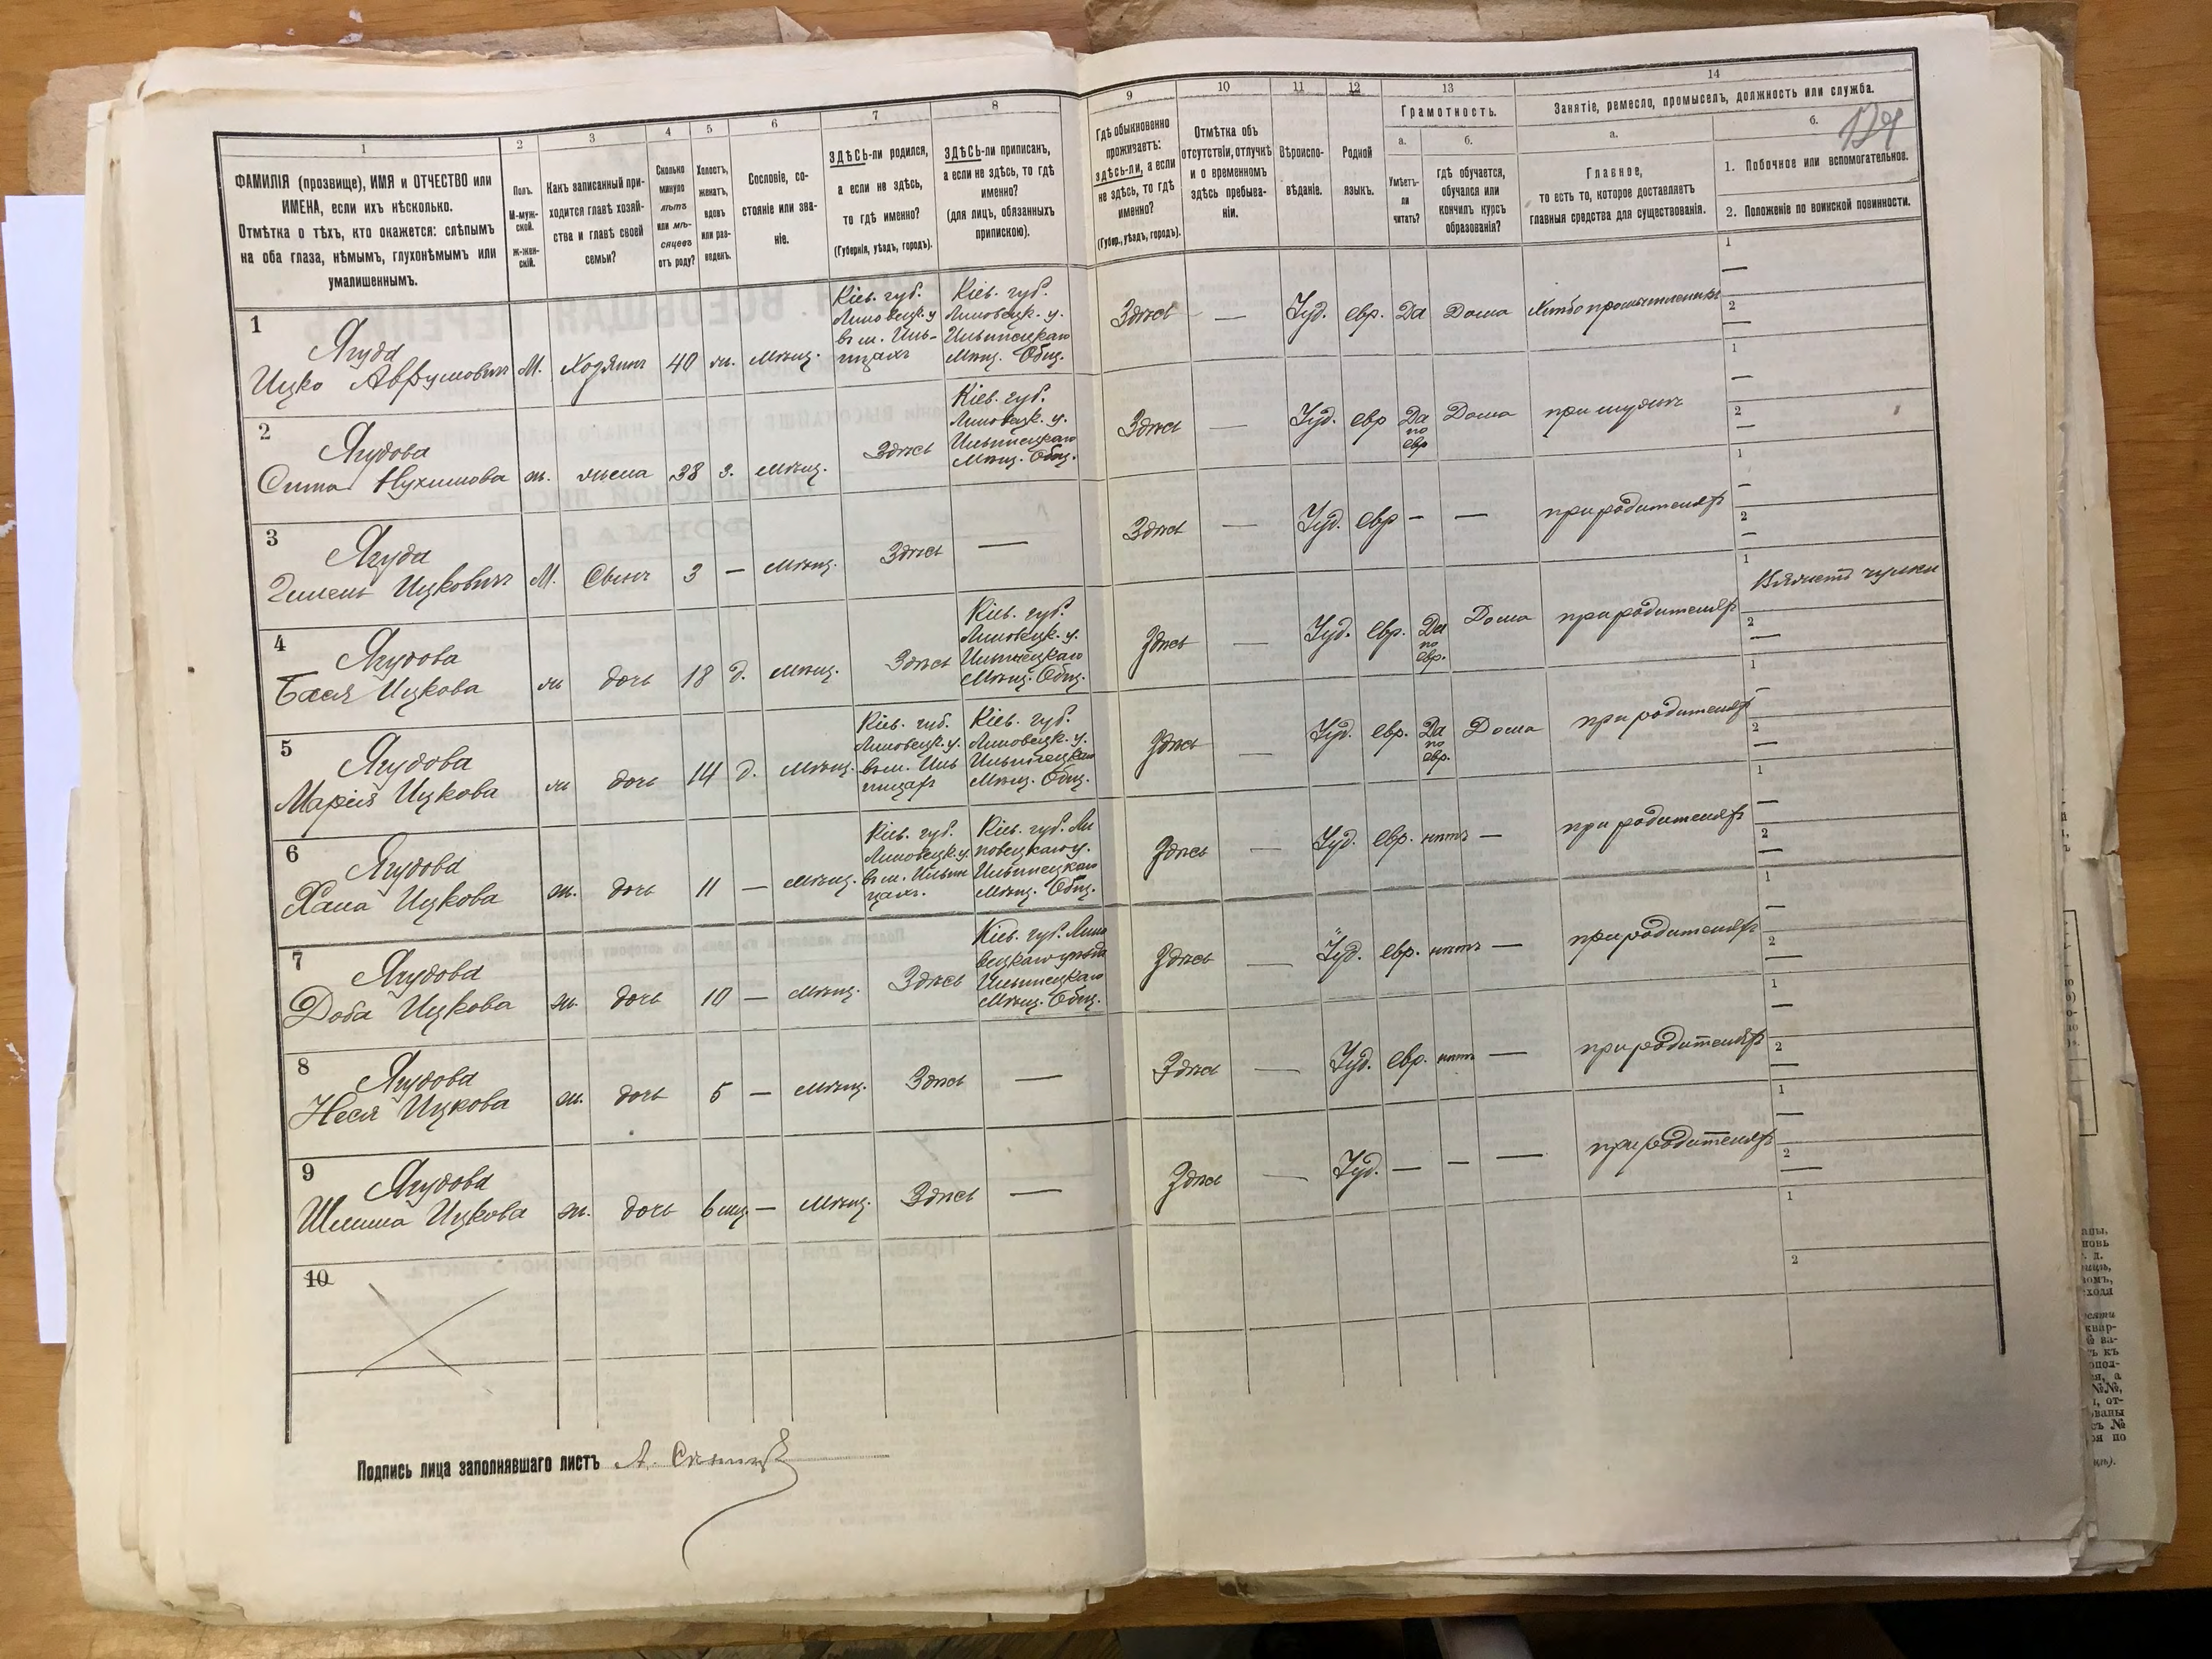 1
2
3
4
5
6
7
8
ФАМИЛІЯ (прозвище), ИМЯ и ОТЧЕСТВО или
ИМЕНА, если ихъ нѣсколько.
Отмѣтка о тѣхъ, кто окажется: слѣпымъ
на оба глаза, нѣмымъ, глухонѣмымъ или
умалишеннымъ.
Полъ.
М-муж-
ской.
Ж-жен-
скій.
Какъ записанный при-
ходится главѣ хозяй-
ства и главѣ своей
семьи?
Сколько
минуло
лѣтъ
или мѣ-
сяцевъ
отъ роду?
Холостъ,
женатъ,
вдовъ
или раз-
веденъ.
Сословіе, со-
стояніе или зва-
ніе.
ЗДѢСЬ-ли родился,
а если не здѣсь,
то гдѣ именно?
(Губернія, уѣздъ, городъ).
ЗДѢСЬ-ли приписанъ,
а если не здѣсь, то гдѣ
именно?
(для лицъ, обязанныхъ
припискою).
9
10
11
12
13
14
Гдѣ обыкновенно
проживаетъ:
здѣсь-ли, а если
не здѣсь, то гдѣ
именно?
(Губер., уѣздъ, городъ).
Отмѣтка объ
отсутствіи, отлучкѣ
и о временномъ
здѣсь пребыва-
ніи.
Вѣроиспо-
вѣданіе.
Родной
языкъ.
Грамотность.
а.
Умѣетъ-
ли
читать?
б.
гдѣ обучается,
обучался или
кончилъ курсъ
образованія?
Занятіе, ремесло, промыселъ, должность или служба.
а.
Главное,
то есть то, которое доставляетъ
главныя средства для существованія.
б.
1. Побочное или вспомогательное.
2. Положеніе по воинской повинности.
1
Ягуда
Ицко Аврумовичъ
М. Хозяинъ 40 ж. Мѣщ.
Кіев. губ.
Липовецк. у
въ м. Иль-
нцахъ
Кіев. губ.
Липовецк. у.
Ильинецкаго
Мѣщ. Общ.
Здѣсь — Іуд. евр. Да Дома Хлѣбопромышленникъ
1 —
2 —
2
Ягудова
Сима Нухимова
ж. жена 38 з. Мѣщ. Здѣсь
Кіев. губ.
Липовецк. у.
Ильинецкаго
Мѣщ. Общ.
Здѣсь — Іуд. евр Да
по
евр
Дома при мужѣ
1 —
2 —
3
Ягуда
Ицковичъ
М. Сынъ 3 — Мѣщ. Здѣсь —
Здѣсь — Іуд. евр — — при родителяхъ
1 —
2 —
4
Ягудова
Бася Ицкова
ж дочь 18 д. Мѣщ. Здѣсь
Кіев. губ.
Липовецк. у.
Ильинецкаго
Мѣщ. Общ.
Здѣсь — Іуд. евр. Да
по
евр.
Дома при родителяхъ
1 Вяжетъ чулки
2 —
5
Ягудова
Марія Ицкова
ж дочь 14 д. Мѣщ.
Кіев. губ.
Липовецк. у.
въ м. Иль
ницахъ
Кіев. губ.
Липовецк. у.
Ильинецкаго
Мѣщ. Общ.
Здѣсь — Іуд. евр. Да
по
евр.
Дома при родителяхъ
1 —
2 —
6
Ягудова
Хана Ицкова
ж. дочь 11 — Мѣщ.
Кіев. губ.
Липовецк. у.
въ м. Ильин
цахъ.
Кіев. губ. Ли
повецкаго у.
Ильинецкаго
Мѣщ. Общ.
Здѣсь — Іуд. евр. нѣтъ — при родителяхъ
1 —
2 —
7
Ягудова
Доба Ицкова
ж. дочь 10 — Мѣщ. Здѣсь
Кіев. губ. Липо
вецкаго уѣзда
Ильинецкаго
Мѣщ. Общ.
Здѣсь — Іуд. евр. нѣтъ — при родителяхъ
1 —
2 —
8
Ягудова
Неся Ицкова
ж. дочь 5 — Мѣщ. Здѣсь —
Здѣсь — Іуд. евр. нѣтъ — при родителяхъ
1 —
2 —
9
Ягудова
Ицкова
ж. дочь 6 мѣц — Мѣщ. Здѣсь —
Здѣсь — Іуд. — — — при родителяхъ
1 —
2 —
10
1
2
Подпись лица заполнявшаго листъ